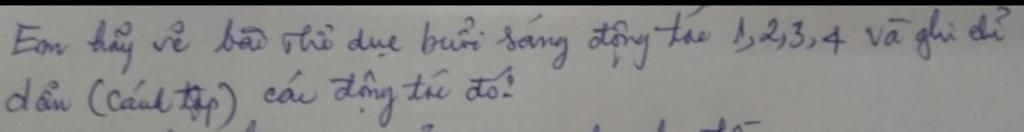 Em hãy vẽ bài thể dục buổi sáng động tác 1,2,3,4 và ghi chỉ
dẫn (cách tập) các động tác đó?